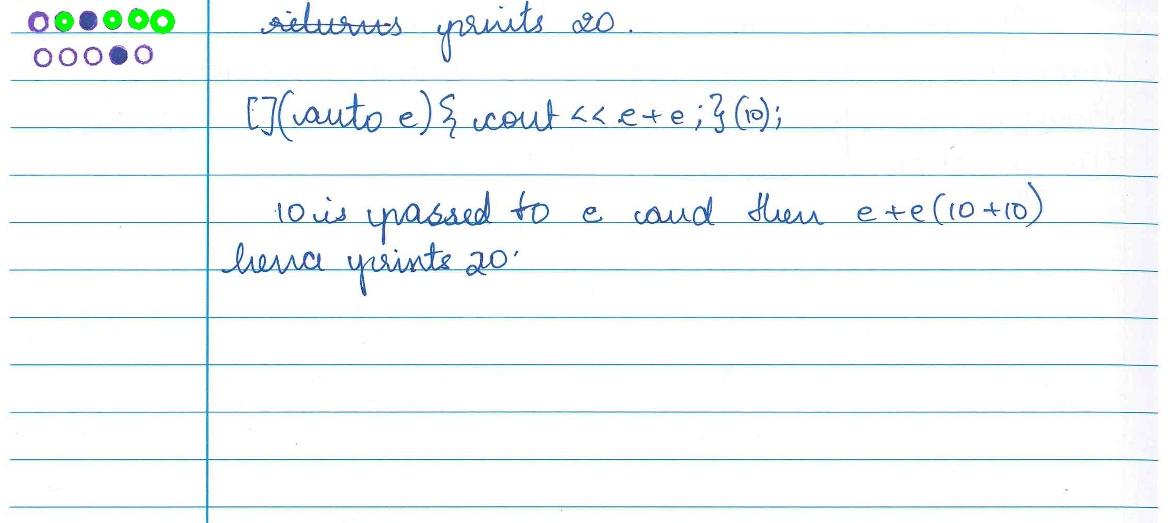 returns prints 20.
[](auto e){ cout << e+e;}(10);
10 is passed to e and then e+e(10+10)
hence prints 20.